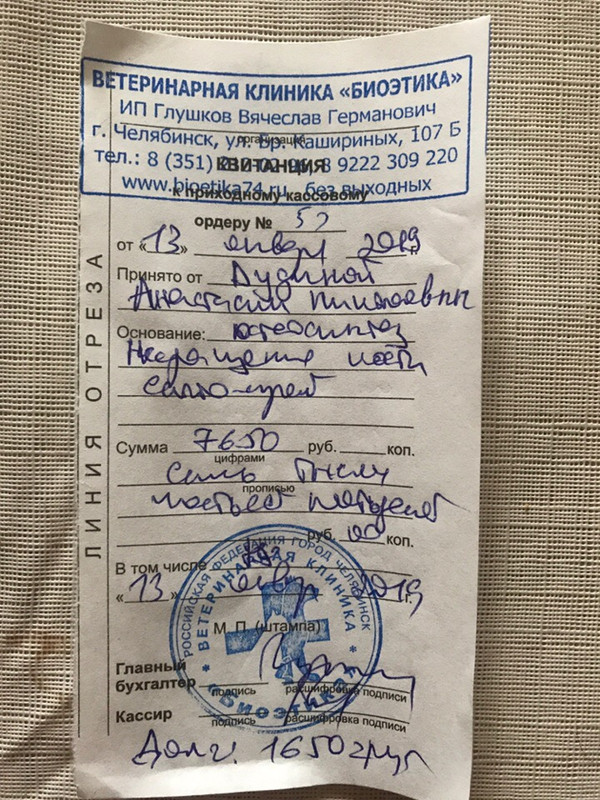 ВЕТЕРИНАРНАЯ КЛИНИКА «БИОЭТИКА»
ИП Глушков Вячеслав Германович
организация
г. Челябинск, ул. Бр. Кашириных, 107 Б
КВИТАНЦИЯ
тел.: 8 (351) 8 9222 309 220
www.bioetika74.ru без выходных
к приходному кассовому
ордеру №
от «13» января 2019 г.
Принято от Дудиной
Анастасии Николаевны
Основание: остеосинтез
кости
Сумма 7650 руб. коп.
цифрами
семь тысяч
прописью
шестьсот пятьдесят
руб. 00 коп.
В том числе
«13» января 2019 г.
М. П. (штампа)
Главный
бухгалтер
подпись расшифровка подписи
Кассир
подпись расшифровка подписи
Долг: 1650 руб
ЛИНИЯ ОТРЕЗА
РОССИЙСКАЯ ФЕДЕРАЦИЯ ГОРОД ЧЕЛЯБИНСК
ВЕТЕРИНАРНАЯ КЛИНИКА
«Биоэтика»